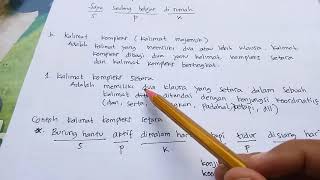 Saya sedang belajar di rumah
S P K
b. Kalimat kompleks (kalimat majemuk)
Adalah kalimat yang memiliki dua atau lebih klausa. Kalimat
kompleks dibagi dua yaitu kalimat kompleks setara
dan kalimat kompleks bertingkat.
1. Kalimat kompleks Setara
Adalah memiliki dua klausa yang setara dalam sebuah
kalimat ditandai dengan konjungsi koordinatif
(dan, serta, padahal, tetapi, dll)
Contoh kalimat kompleks setara
Burung hantu aktif dimalam hari tidur disiang har
S P K P
konj